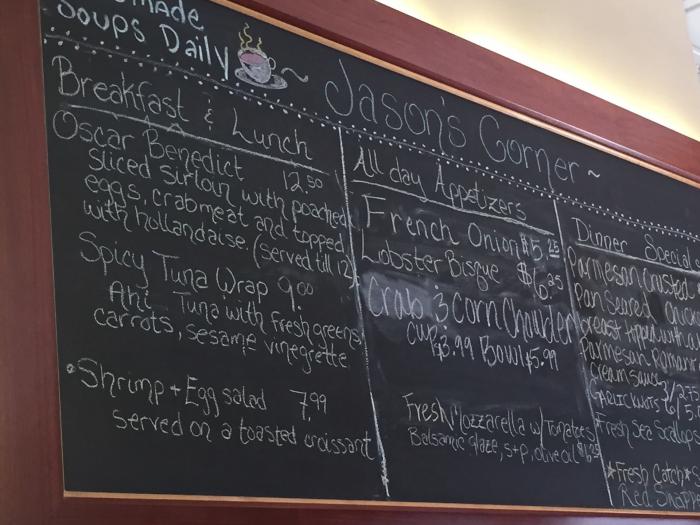 Soups Daily
Jason's Corner ~
Breakfast & Lunch
Oscar Benedict 12.50
sliced sirloin with poached
eggs, crabmeat and topped
with hollandaise. (served till 12)
Spicy Tuna Wrap 9.00
Ahi Tuna with fresh greens,
carrots, sesame vinegrette
Shrimp + Egg salad 7.99
served on a toasted croissant
All day Appetizers
French Onion $5.25
Lobster Bisque $6.25
Crab & Corn Chowder
cup $3.99 Bowl $5.99
Fresh Mozzarella w/ Tomatoes
Balsamic glaze, s+p, olive oil
Dinner Special
Parmesan Crusted
Pan Seared
breast topped with
Parmesan
cream sauce
Garlic knots
Fresh Sea Scallops
*Fresh Catch*
Red